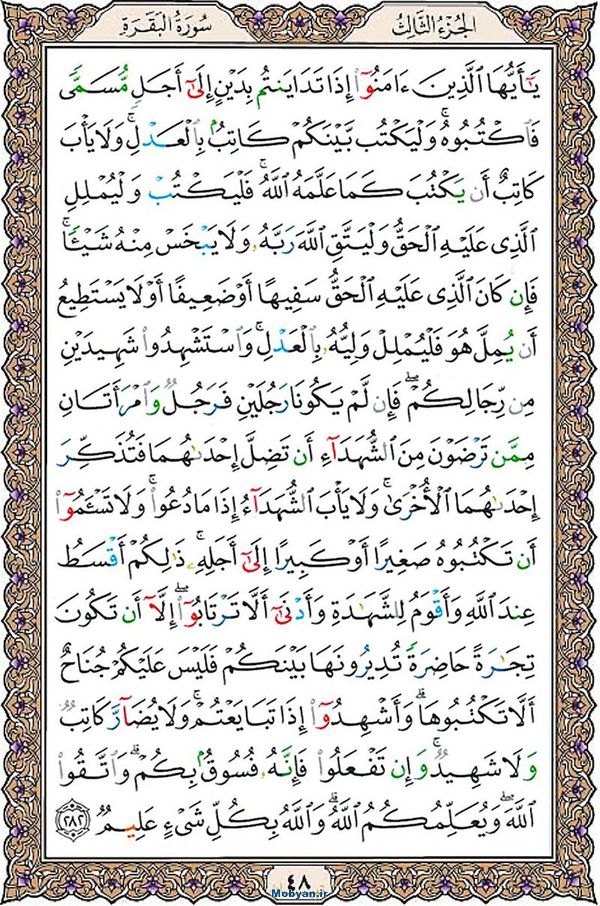 الجُزْءُ الثَّالِثُ
سُورَةُ البَقَرَةِ
يَٰٓأَيُّهَا ٱلَّذِينَ ءَامَنُوٓا۟ إِذَا تَدَايَنتُم بِدَيْنٍ إِلَىٰٓ أَجَلٍ مُّسَمًّى
فَٱكْتُبُوهُ ۚ وَلْيَكْتُب بَّيْنَكُمْ كَاتِبٌۢ بِٱلْعَدْلِ ۚ وَلَا يَأْبَ
كَاتِبٌ أَن يَكْتُبَ كَمَا عَلَّمَهُ ٱللَّهُ ۚ فَلْيَكْتُبْ وَلْيُمْلِلِ
ٱلَّذِى عَلَيْهِ ٱلْحَقُّ وَلْيَتَّقِ ٱللَّهَ رَبَّهُۥ وَلَا يَبْخَسْ مِنْهُ شَيْـًٔا ۚ
فَإِن كَانَ ٱلَّذِى عَلَيْهِ ٱلْحَقُّ سَفِيهًا أَوْ ضَعِيفًا أَوْ لَا يَسْتَطِيعُ
أَن يُمِلَّ هُوَ فَلْيُمْلِلْ وَلِيُّهُۥ بِٱلْعَدْلِ ۚ وَٱسْتَشْهِدُوا۟ شَهِيدَيْنِ
مِن رِّجَالِكُمْ ۖ فَإِن لَّمْ يَكُونَا رَجُلَيْنِ فَرَجُلٌ وَٱمْرَأَتَانِ
مِمَّن تَرْضَوْنَ مِنَ ٱلشُّهَدَآءِ أَن تَضِلَّ إِحْدَىٰهُمَا فَتُذَكِّرَ
إِحْدَىٰهُمَا ٱلْأُخْرَىٰ ۚ وَلَا يَأْبَ ٱلشُّهَدَآءُ إِذَا مَا دُعُوا۟ ۚ وَلَا تَسْـَٔمُوٓا۟
أَن تَكْتُبُوهُ صَغِيرًا أَوْ كَبِيرًا إِلَىٰٓ أَجَلِهِۦ ۚ ذَٰلِكُمْ أَقْسَطُ
عِندَ ٱللَّهِ وَأَقْوَمُ لِلشَّهَٰدَةِ وَأَدْنَىٰٓ أَلَّا تَرْتَابُوٓا۟ ۖ إِلَّآ أَن تَكُونَ
تِجَٰرَةً حَاضِرَةً تُدِيرُونَهَا بَيْنَكُمْ فَلَيْسَ عَلَيْكُمْ جُنَاحٌ
أَلَّا تَكْتُبُوهَا ۗ وَأَشْهِدُوٓا۟ إِذَا تَبَايَعْتُمْ ۚ وَلَا يُضَآرَّ كَاتِبٌ
وَلَا شَهِيدٌ ۚ وَإِن تَفْعَلُوا۟ فَإِنَّهُۥ فُسُوقٌۢ بِكُمْ ۗ وَٱتَّقُوا۟
ٱللَّهَ ۖ وَيُعَلِّمُكُمُ ٱللَّهُ ۗ وَٱللَّهُ بِكُلِّ شَىْءٍ عَلِيمٌ ﴿٢٨٢﴾
٤٨
Mobyan.ir